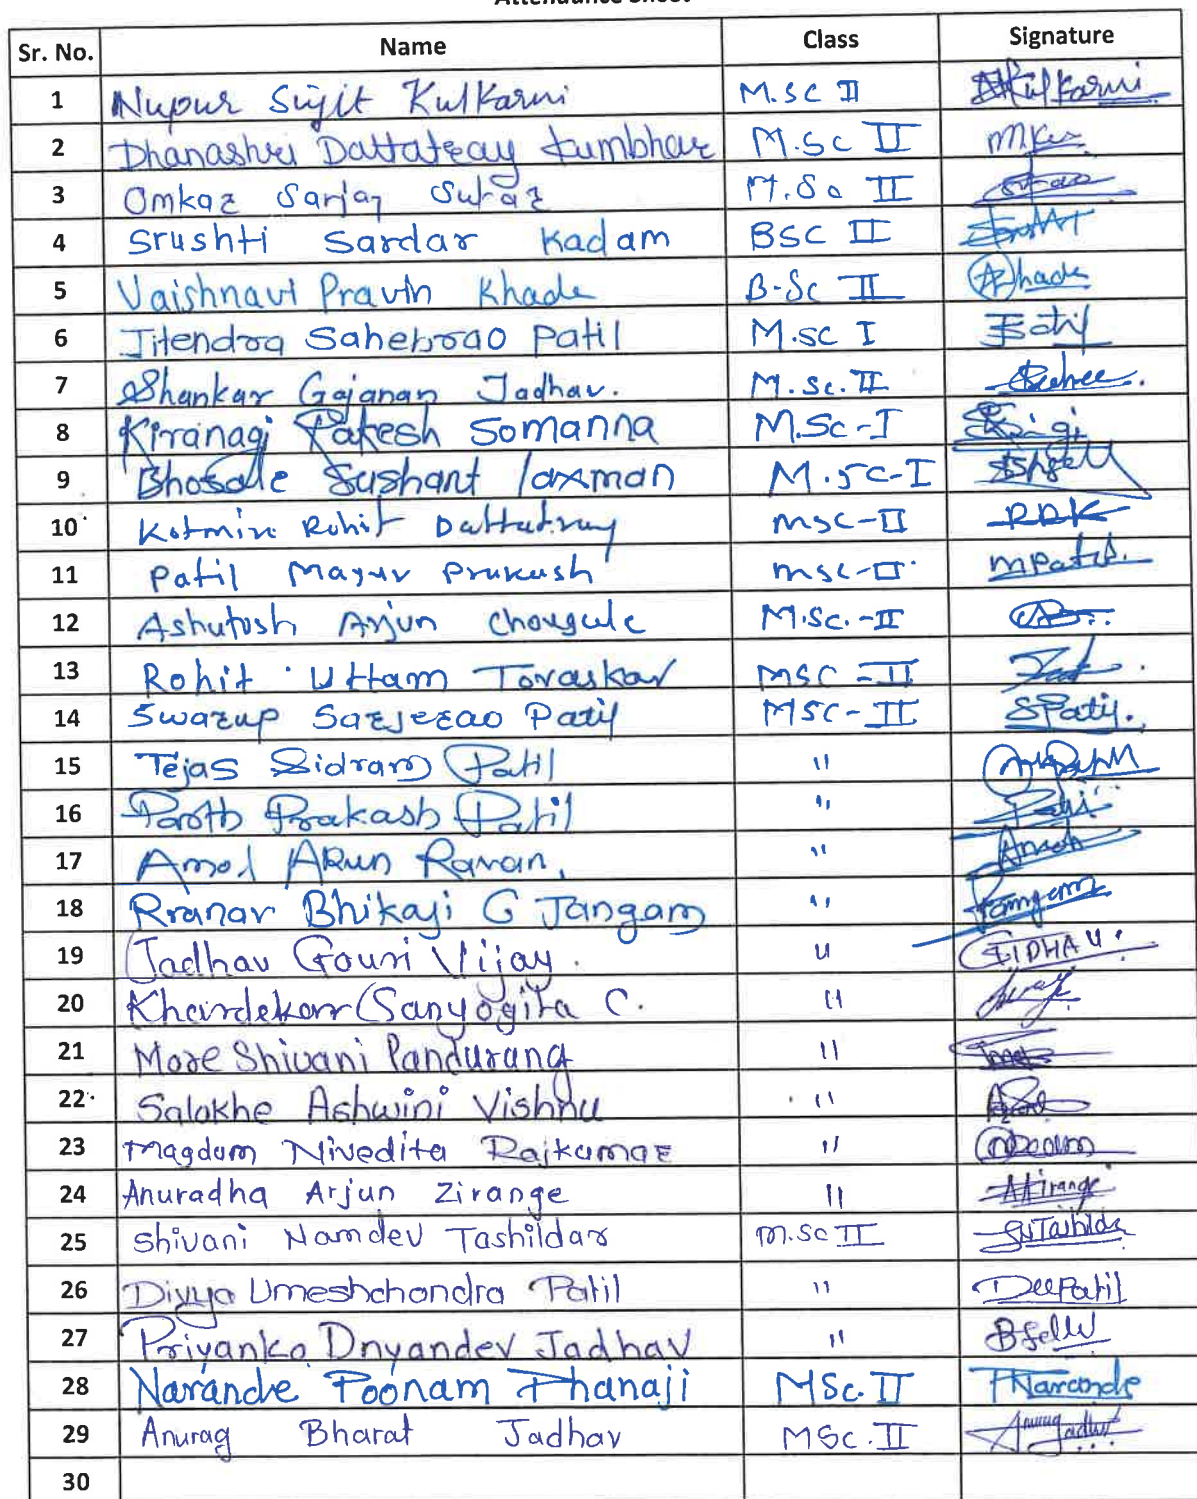 Attendance Sheet
Sr. No. Name Class Signature
1 Nupur Sujit Kulkarni M.SC II Kulkarni
2 Dhanashri Dattatray Kumbhar M.Sc II
3 Omkar Sarjag Sutar M.Sc II
4 Srushti Sardar Kadam BSC II
5 Vaishnavi Pravin Khade B-Sc II Khade
6 Jitendra Sahebrao Patil M.SC I Patil
7 Shankar Gajanan Jadhav. M.Sc. II
8 Kiranagi Rakesh Somanna M.Sc-I
9 Bhosale Sushant laxman M.SC-I
10 Rohit Dattatray MSC-II RDK
11 Patil Mayur Prakash msc-II MPatil.
12 Ashutosh Arjun Chougule M.Sc.-II
13 Rohit Uttam Toraskar MSC-II
14 Swarup Sarjerao Patil MSC-II SPatil.
15 Tejas Sidram Patil "
16 Parth Prakash Patil " Patil
17 Amol ARun Ravan, " Amol
18 Pranav Bhikaji G Jangam " Jangam
19 Jadhav Gouri Vijay. "
20 Khandekar Sanyogita C. "
21 More Shivani Pandurang "
22 Salokhe Ashwini Vishnu "
23 Magdum Nivedita Rajkumar "
24 Anuradha Arjun Zirange " AZirange
25 Shivani Namdev Tashildar M.Sc II SNTashildar
26 Divya Umeshchandra Patil " DeePatil
27 Priyanka Dnyandev Jadhav "
28 Narande Poonam Dhanaji MSc. II PNarande
29 Anurag Bharat Jadhav MSc. II AnuragJadhav
30